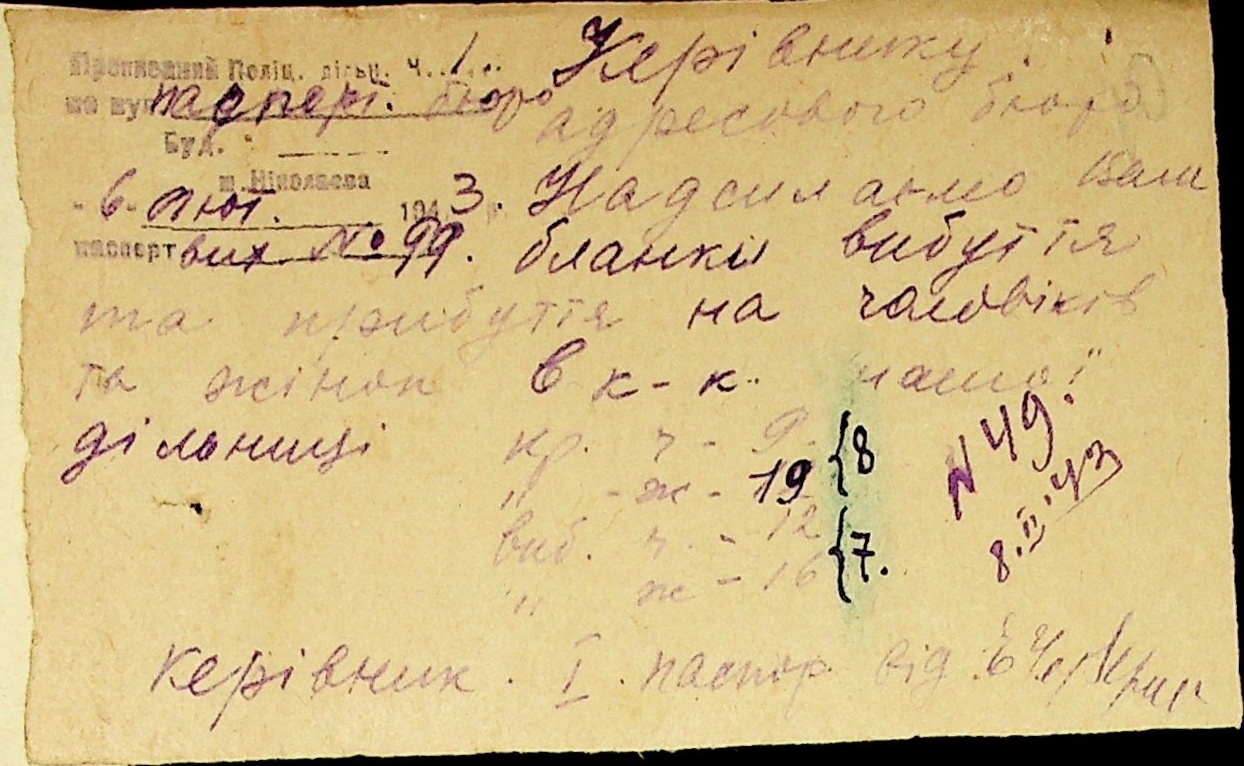 Прописний Поліц. дільн. ч. 1.
по вул. паспорт. бюро
Буд.
м. Ніколаєва
- 6 - лют. 1943 р.
паспорт вих № 99.
Керівнику
адресового бюро
Надсилаємо Вам
бланки вибуття
та прибуття на чоловіків
та жінок в к-к нашої
дільниці кр. ч - 9 {8
" - ж - 19
виб. ч. - 12 {7.
" ж - 16
N 49.
8.II.43
Керівник I паспор від